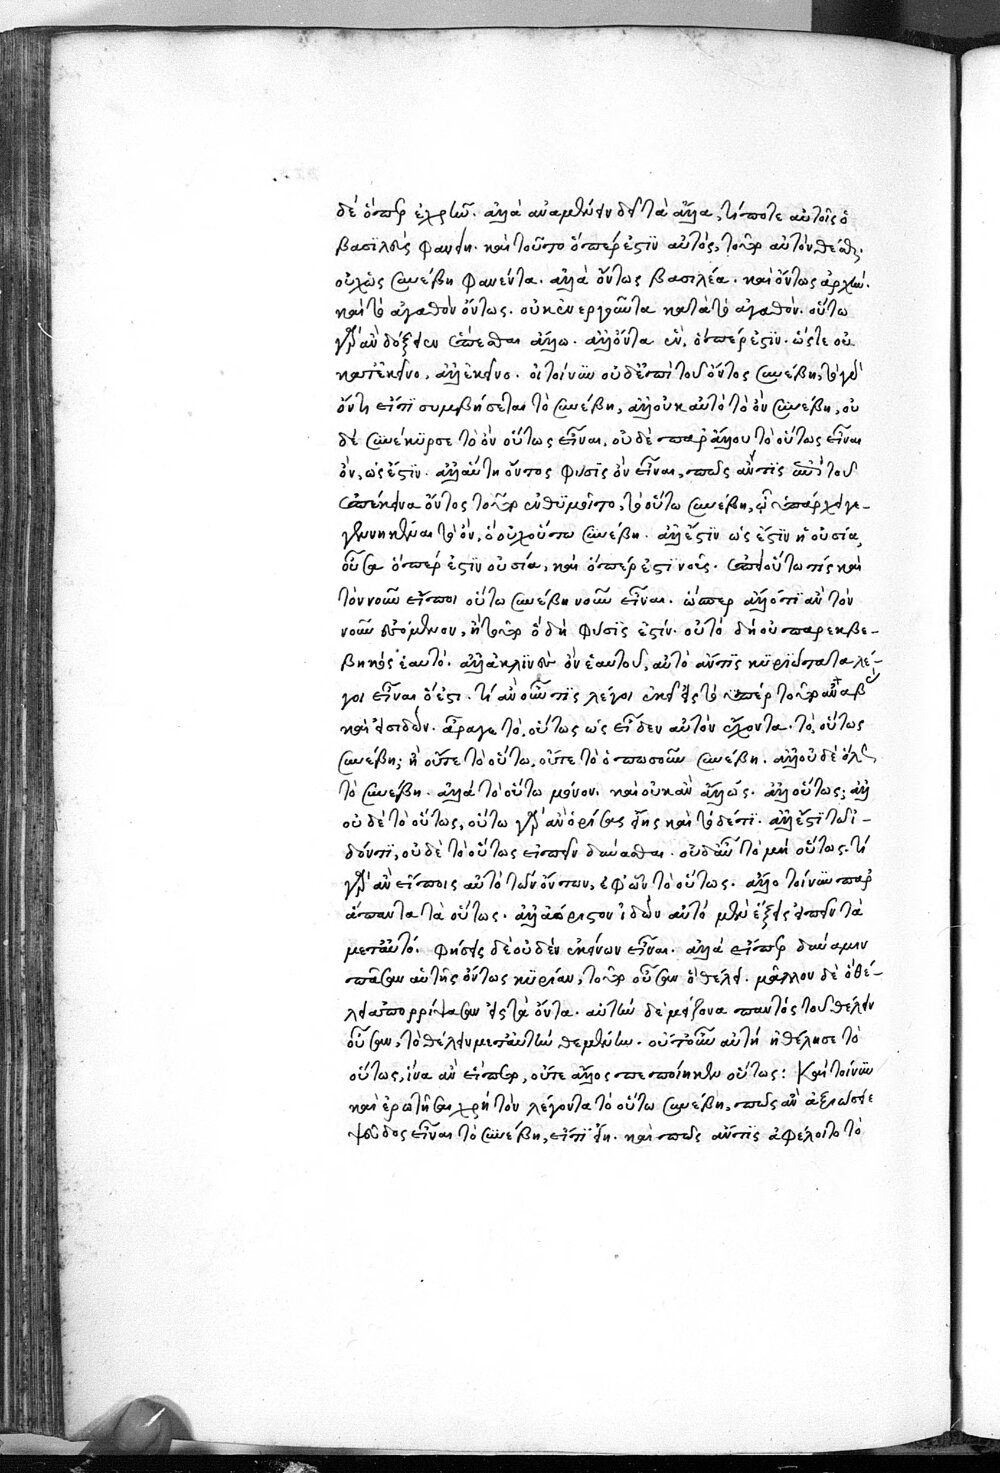 δὲ ὅπερ ἐχρῆν. ἀλλὰ ἀναμένειν δεῖ τὰ ἄλλα, τί ποτε αὐτοῖς ὁ
βασιλεὺς φανείη. καὶ τοῦτο ὅπερ ἐστὶν αὐτός, τοῦτο αὐτὸν θέσθαι.
οὐχ ὡς συνέβη φανέντα. ἀλλὰ ὄντως βασιλέα. καὶ ὄντως ἀρχήν.
καὶ τὸ ἀγαθὸν ὄντως. οὐκ ἐνεργοῦντα κατὰ τὸ ἀγαθόν. οὕτω
γὰρ ἂν δόξειεν ἕπεσθαι ἄλλω. ἀλλ' ὄντα ἓν, ὅπερ ἐστίν. ὥστε οὐ
κατ' ἐκεῖνο, ἀλλ' ἐκεῖνο. εἰ τοίνυν οὐδ' ἐπὶ τοῦ ὄντος συνέβη, τῶ γὰρ
ὄντι εἴ τι συμβήσεται τὸ συνέβη, ἀλλ' οὐκ αὐτὸ τὸ ὂν συνέβη, οὐ
δὲ συνέκυρσε τὸ ὂν οὕτως εἶναι, οὐδὲ παρ' ἄλλου τὸ οὕτως εἶναι
ὂν, ὡς ἔστιν. ἀλλ' αὕτη ὄντως φύσις ὂν εἶναι, πῶς ἄν τις ἐπὶ τοῦ
ἐπέκεινα ὄντος τοῦτο ἐνθυμοῖτο, τὸ οὕτω συνέβη, ᾧ ὑπάρχει γε-
γεννηκέναι τὸ ὂν, ὃ οὐχ οὕτω συνέβη. ἀλλ' ἔστιν ὡς ἔστιν ἡ οὐσία,
οὖσα ὅπερ ἐστὶν οὐσία, καὶ ὅπερ ἐστὶ νοῦς. ἐπεὶ οὕτω τις καὶ
τὸν νοῦν εἴποι οὕτω συνέβη νοῦν εἶναι. ὥσπερ ἄλλό τι ἂν τὸν
νοῦν ἐσόμενον, ἢ τοῦτο ὃ δὴ φύσις ἐστίν. οὐ τὸ δὴ οὐ παρεκβε-
βηκὸς ἑαυτὸ. ἀλλ' ἀκλινὲς ὂν ἑαυτοῦ, αὐτὸ ἄν τις κυριώτατα λέ-
γοι εἶναι ὅ ἐστι. τί ἂν οὖν τις λέγοι ἐκεῖ εἰς τὸ ὑπὲρ τοῦτο ἀναβὰς
καὶ εἰσιδών. ἆρά γε τὸ, οὕτως ὡς εἶδεν αὐτὸν ἔχοντα. τὸ, οὕτως
συνέβη; ἢ οὔτε τὸ οὕτω, οὔτε τὸ ὁπωσοῦν συνέβη. ἀλλ' οὐδὲ ὅλως
τὸ συνέβη. ἀλλὰ τὸ οὕτω μόνον. καὶ οὐκ ἂν ἄλλως. ἀλλ' οὕτως; ἀλλ'
οὐδὲ τὸ οὕτως, οὕτω γὰρ ἂν ὁρίσας εἴης καὶ τόδε τι. ἀλλ' ἔστι τῶ ἰ-
δόντι, οὐδὲ τὸ οὕτως εἰπεῖν δύνασθαι. οὐδ' αὖ τὸ μὴ οὕτως. τὶ
γὰρ ἂν εἴποις αὐτὸ τῶν ὄντων, ἐφ' ὧν τὸ οὕτως. ἄλλο τοίνυν παρ'
ἅπαντα τὰ οὕτως. ἀλλ' ἀόριστον ἰδὼν αὐτὸ μὲν ἕξεις εἰπεῖν τὰ
μετ' αὐτό. φήσεις δὲ οὐδὲν ἐκείνων εἶναι. ἀλλὰ εἴπερ δύναμιν
πᾶσαν αὑτῆς ὄντως κυρίαν, τοῦτο οὖσαν ὃ θέλει. μᾶλλον δὲ ὃ θέ-
λει ἀπορρίψασαν εἰς τὰ ὄντα. αὐτὴν δὲ μείζονα παντὸς τοῦ θέλειν
οὖσαν, τὸ θέλειν μετ' αὐτὴν θεμένην. οὔτ' οὖν αὐτὴ ἠθέλησε τὸ
οὕτως, ἵνα ἂν εἵπετο, οὔτε ἄλλος πεποίηκεν οὕτως: Καὶ τοίνυν
καὶ ἐρωτῆσαι χρὴ τὸν λέγοντα τὸ οὕτω συνέβη, πῶς ἂν ἀξιώσειε
ψεῦδος εἶναι τὸ συνέβη, εἰ τί εἴη. καὶ πῶς ἄν τις ἀφέλοιτο τὸ